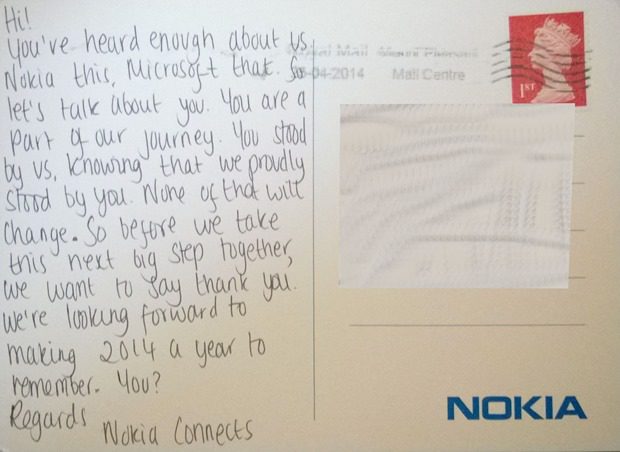 Hi!
You've heard enough about us.
Nokia this, Microsoft that. So
let's talk about you. You are a
part of our journey. You stood
by us, knowing that we proudly
stood by you. None of that will
change. So before we take
this next big step together,
we want to say thank you.
We're looking forward to
making 2014 a year to
remember. You?
Regards
Nokia Connects
Royal Mail
-04-2014 Mail Centre
1ST
NOKIA